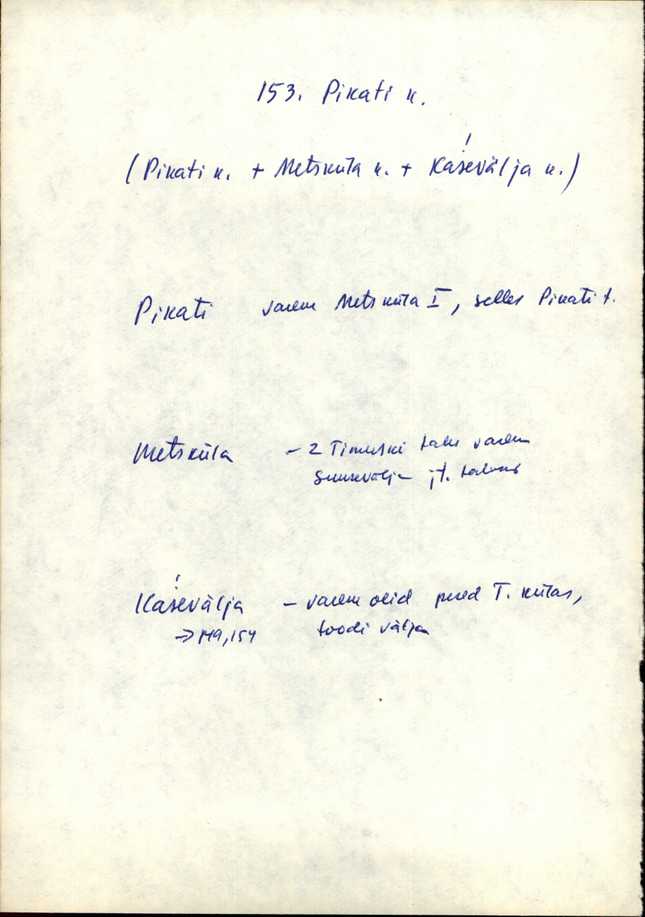 153. Pikati k.
(Pikati k. + Metsküla k. + Kasevälja k.)
Pikati varem Metsküla I, selles Pikati t.
Metsküla - 2 Timuski talu varem
Suurevälja jt. talud
Kasevälja - varem olid pered T. külas,
→ 149, 154 toodi välja